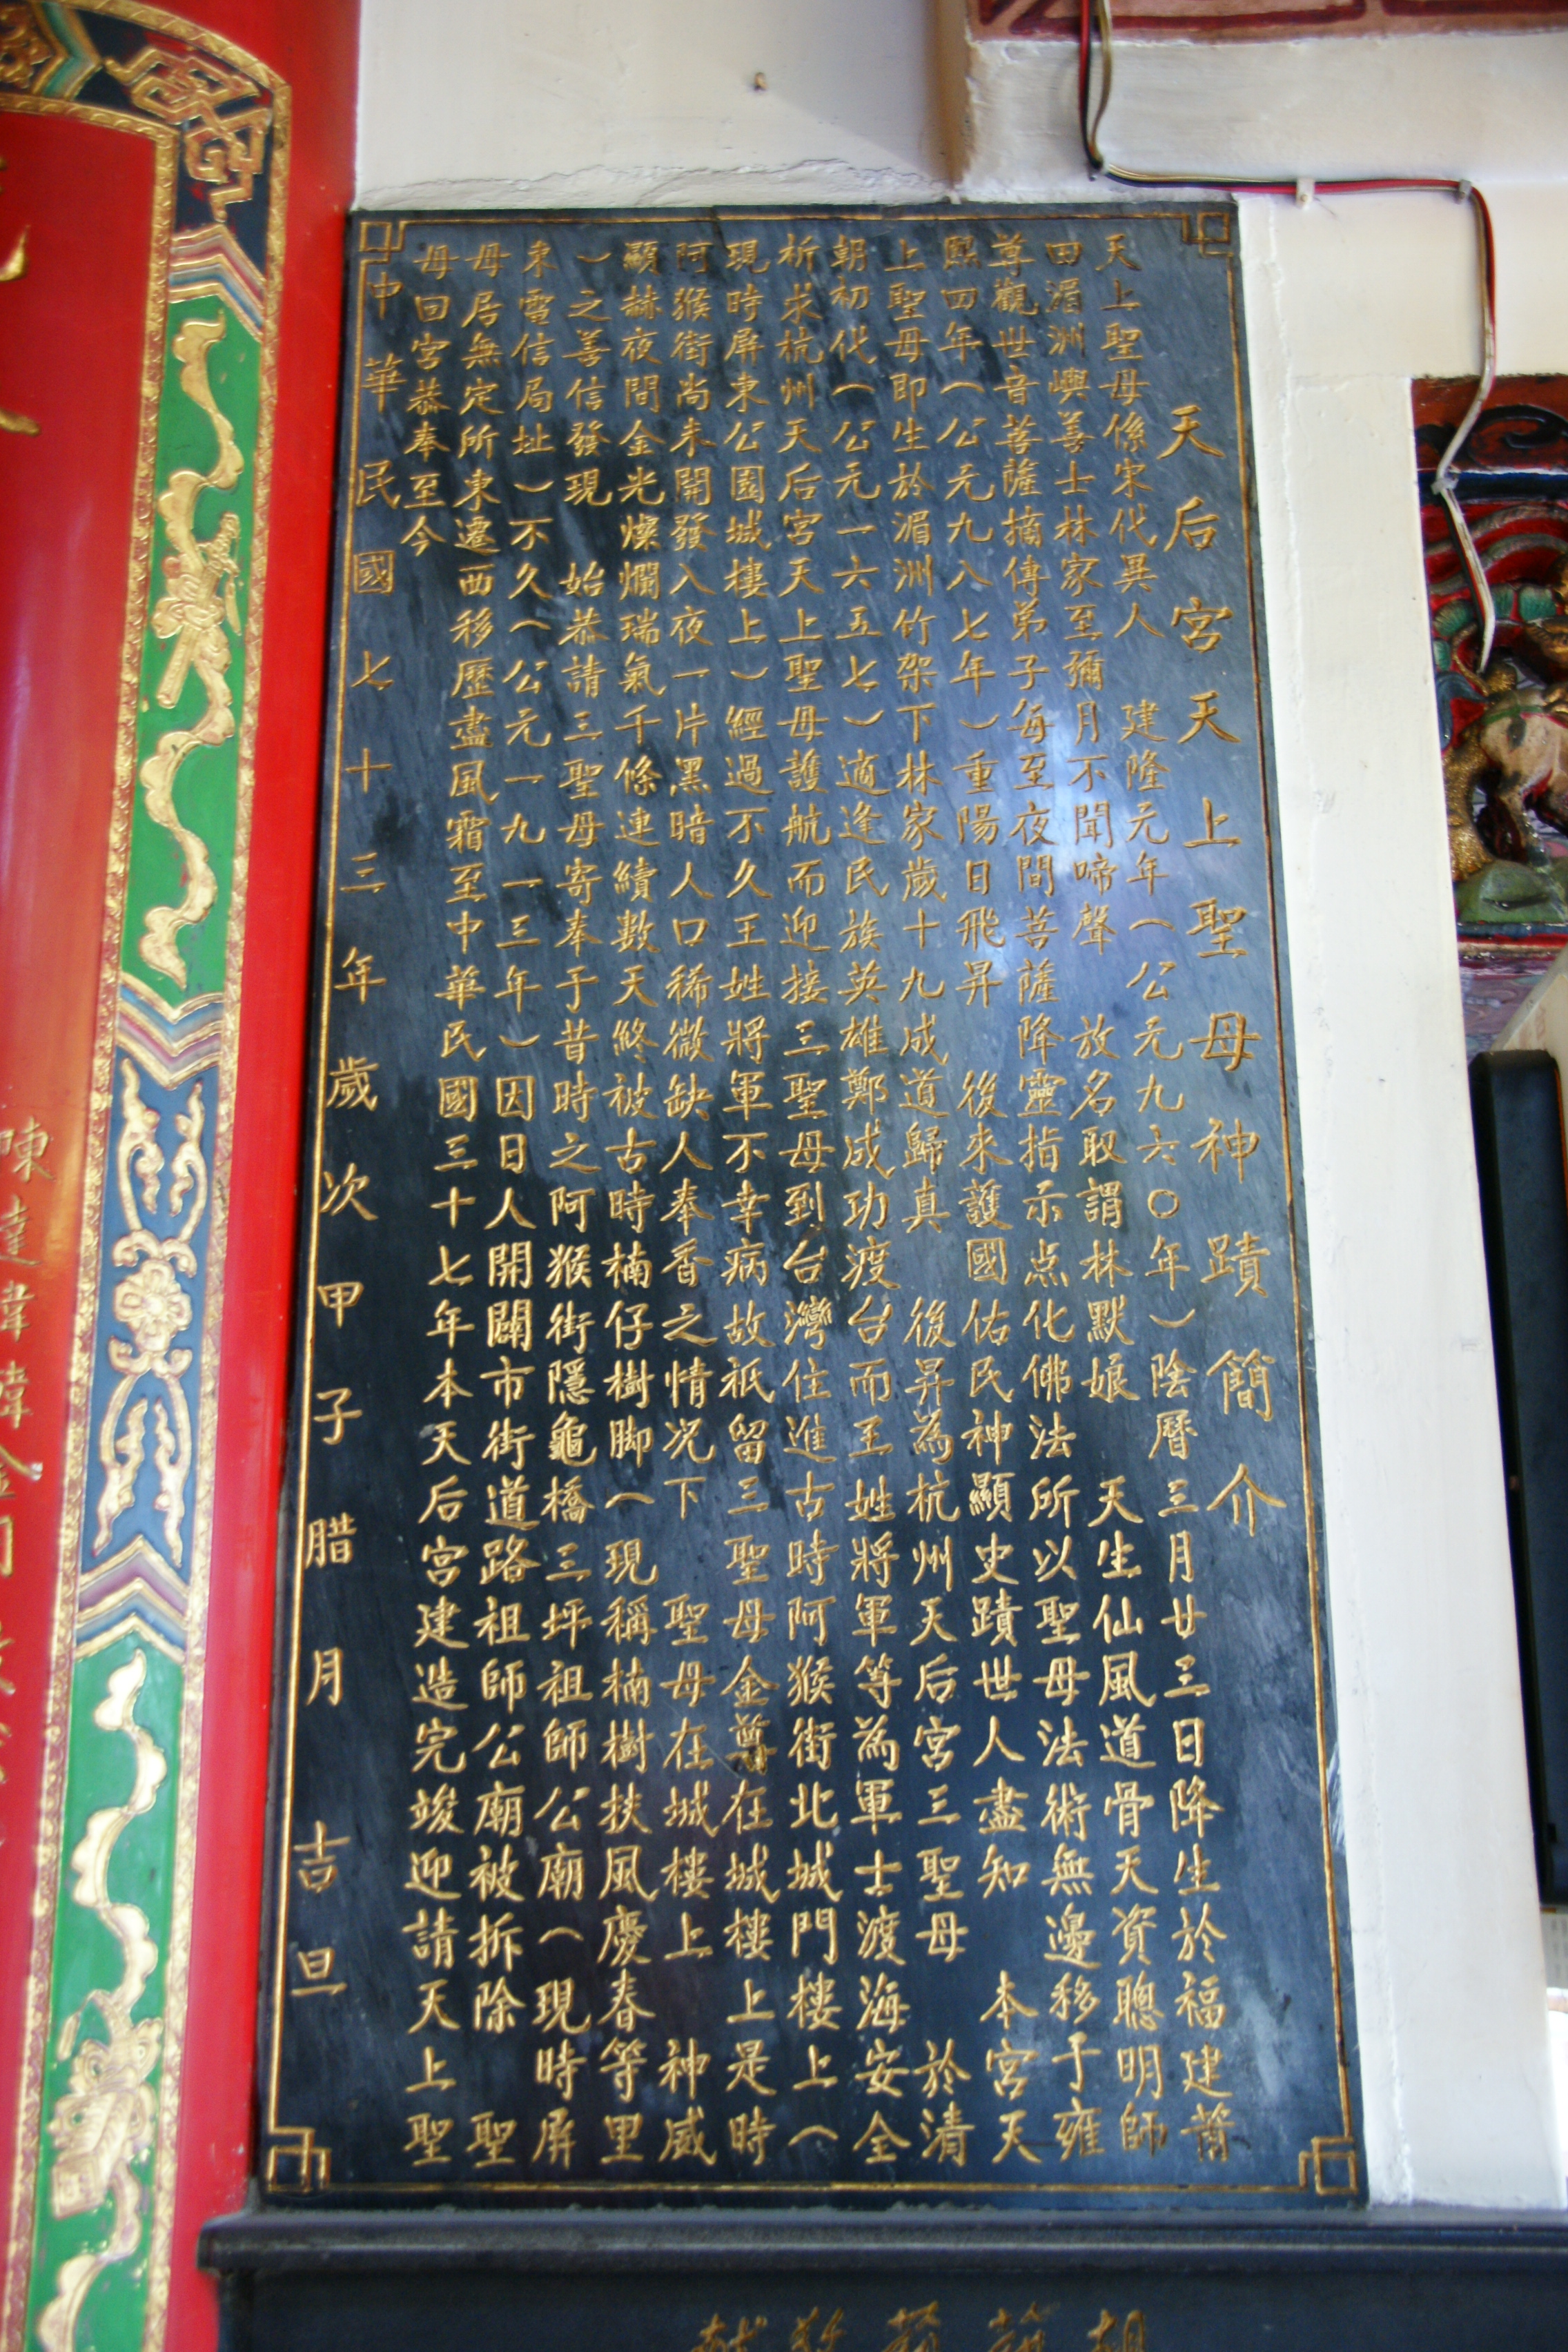 天后宮天上聖母神蹟簡介
天上聖母係宋代異人　建隆元年（公元九六〇年）陰曆三月廿三日降生於福建莆
田湄洲嶼善士林家至彌月不聞啼聲　放名取謂林默娘　天生仙風道骨天資聰明師
尊觀世音菩薩摘傳弟子每至夜間菩薩降靈指示点化佛法所以聖母法術無邊移于雍
熙四年（公元九八七年）重陽日飛昇　後來護國佑民神顯史蹟世人盡知　本宮天
上聖母即生於湄洲竹架下林家歲十九成道歸真　後昇為杭州天后宮三聖母　於清
朝初代（公元一六五七）適逢民族英雄鄭成功渡台而王姓將軍等為軍士渡海安全
祈求杭州天后宮天上聖母護航而迎接三聖母到台灣住進古時阿猴街北城門樓上（
現時屏東公園城樓上）經過不久王姓將軍不幸病故祇留三聖母金尊在城樓上是時
阿猴街尚未開發入夜一片黑暗人口稀微缺人奉香之情況下　聖母在城樓上　神威
顯赫夜間金光燦爛瑞氣千條連續數天終被古時楠仔樹脚（現稱楠樹扶風慶春等里
）之善信發現　始恭請三聖母寄奉于昔時之阿猴街隱龜橋三坪祖師公廟（現時屏
東電信局址）不久（公元一九一三年）因日人開闢市街道路祖師公廟被拆除　聖
母居無定所東遷西移歷盡風霜至中華民國三十七年本天后宮建造完竣迎請天上聖
母回宮恭奉至今
中華民國七十三年歲次甲子腊月吉旦